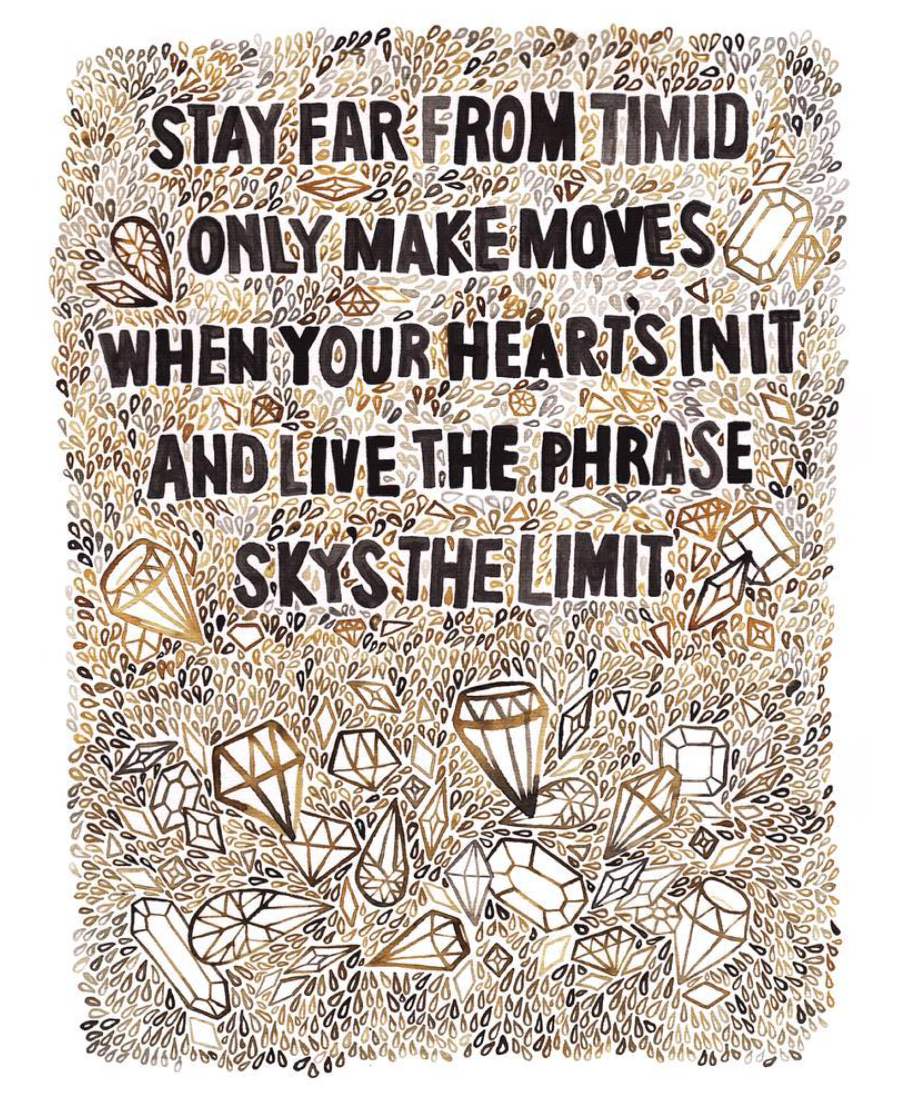 STAY FAR FROM TIMID
ONLY MAKE MOVES
WHEN YOUR HEART'S IN IT
AND LIVE THE PHRASE
SKY'S THE LIMIT